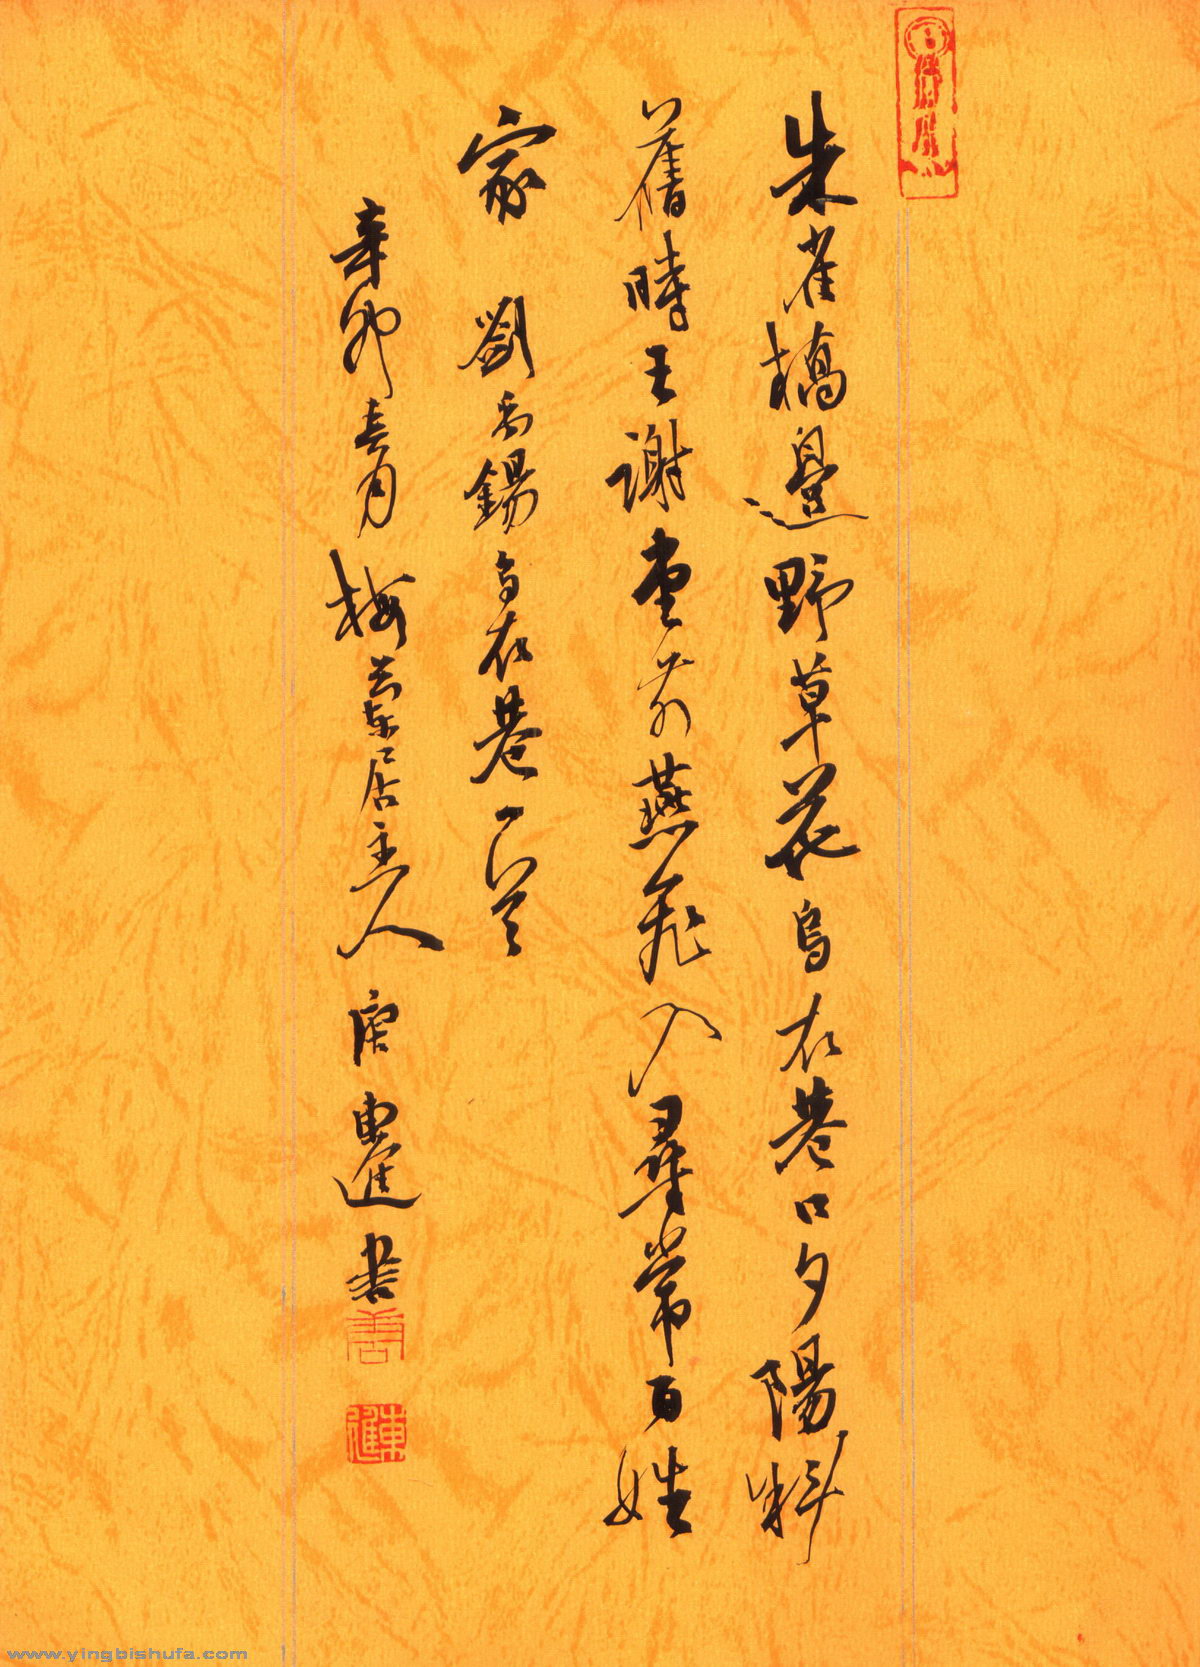 朱雀橋邊野草花烏衣巷口夕陽斜
舊時王謝堂前燕飛入尋常百姓
家 劉禹錫烏衣巷一首
辛卯春月 梅蘭居主人 唐東進書
唐
東進
www.yingbishufa.com